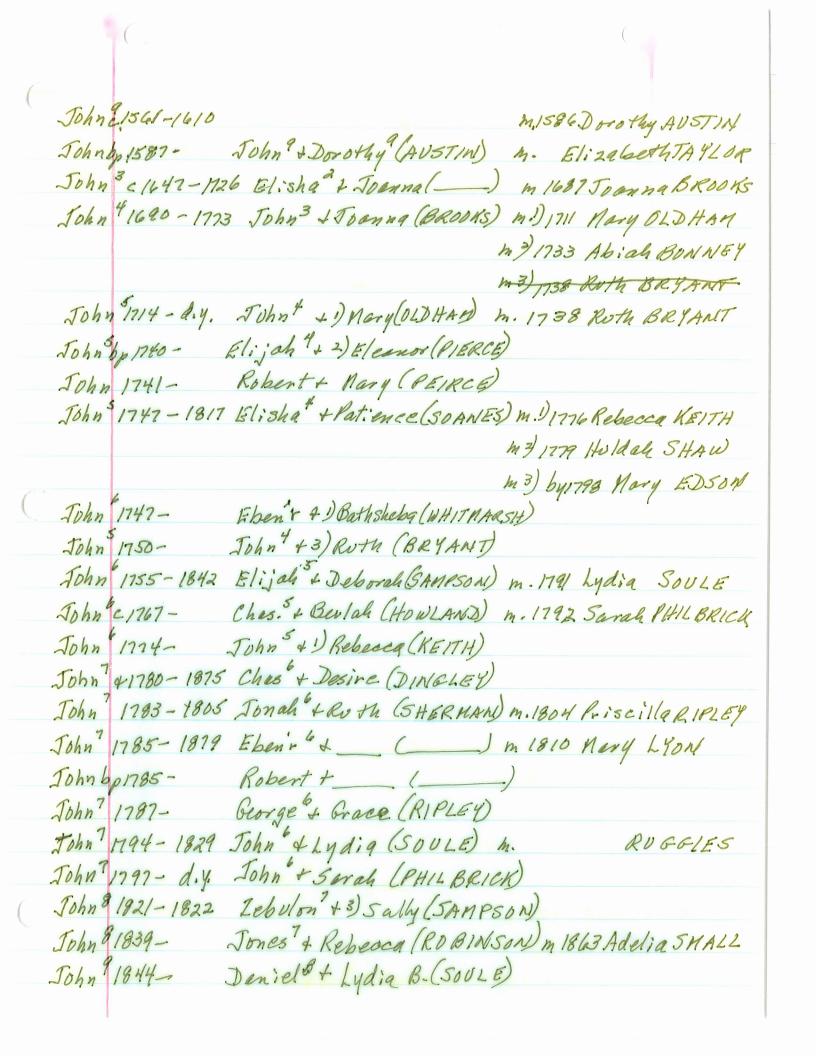 John⁹ c.1565-1610 m.1586 Dorothy AUSTIN
John bp.1587- John⁹ + Dorothy⁹ (AUSTIN) m. Elizabeth TAYLOR
John³ c1647-1726 Elisha² + Joanna (____) m 1687 Joanna BROOKS
John⁴ 1690-1773 John³ + Joanna (BROOKS) m.1) 1711 Mary OLDHAM
m 2) 1733 Abiah BONNEY
m 3) 1738 Ruth BRYANT
John⁵ 1714- d.y. John⁴ + 1) Mary (OLDHAM) m. 1738 Ruth BRYANT
John⁵ bp 1740- Elijah⁴ + 2) Eleanor (PIERCE)
John 1741- Robert + Mary (PEIRCE)
John⁵ 1747-1817 Elisha⁴ + Patience (SOANES) m.1) 1776 Rebecca KEITH
m 2) 1779 Huldah SHAW
m 3) by 1798 Mary EDSON
John⁶ 1747- Eben'r + 1) Bathsheba (WHITMARSH)
John⁵ 1750- John⁴ + 3) Ruth (BRYANT)
John⁶ 1755-1842 Elijah⁵ + Deborah (SAMPSON) m. 1791 Lydia SOULE
John⁶ c1767- Chas.⁵ + Beulah (HOWLAND) m. 1792 Sarah PHILBRICK
John⁶ 1774- John⁵ + 1) Rebecca (KEITH)
John⁷ 1780-1875 Chas⁶ + Desire (DINGLEY)
John⁷ 1783-1805 Jonah⁶ + Ruth (SHERMAN) m. 1804 Priscilla RIPLEY
John⁷ 1785-1879 Eben'r⁶ + ____ (______) m 1810 Mary LYON
John bp 1785- Robert + ____ (______)
John⁷ 1787- George⁶ + Grace (RIPLEY)
John⁷ 1794-1829 John⁶ + Lydia (SOULE) m. RUGGLES
John⁷ 1797- d.y. John⁶ + Sarah (PHILBRICK)
John⁸ 1821-1822 Zebulon⁷ + 3) Sally (SAMPSON)
John⁸ 1839- Jones⁷ + Rebecca (ROBINSON) m 1863 Adelia SMALL
John⁹ 1844- Daniel⁸ + Lydia B. (SOULE)